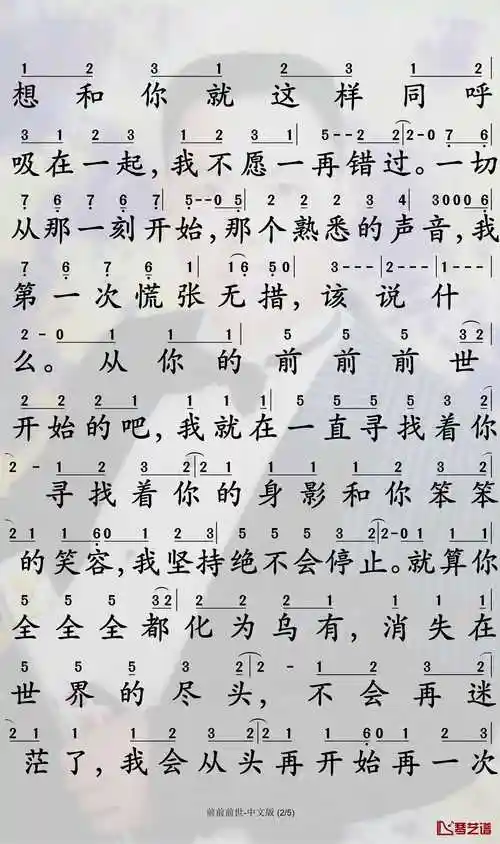 1 2 3 1 2 3 1 2
想和你就这样同呼
3 1 2 3 1 3 2 1 5--2 2-0 7 6
吸在一起，我不愿一再错过。一切
7 6 7 6 7 5--05 2 2 2 3 4 3000 6
从那一刻开始，那个熟悉的声音，我
7 6 7 6 1 16 50 3-- 2-- 1--
第一次慌张无措，该说什
2-0 1 1 5 5 5 32
么。从你的前前前世
2 2 2 1 1 1 1 5 5 5 3 2 1
开始的吧，我就在一直寻找着你
2- 1 2 3 2 2 1 2 3 2
寻找着你的身影和你笨笨
2 1 1 60 1 2 3 5 5 5 3 2 2-0 1 1 1
的笑容，我坚持绝不会停止。就算你
5 5 5 32 2 2 1 1 1 1 1
全全全都化为乌有，消失在
5 5 5 3 2 2- 1 2 3 2
世界的尽头，不会再迷
2 1 1 1 2 3 2 2 1 1 60 1 2 3
茫了，我会从头再开始再一次
前前前世-中文版 (2/5)
琴艺谱